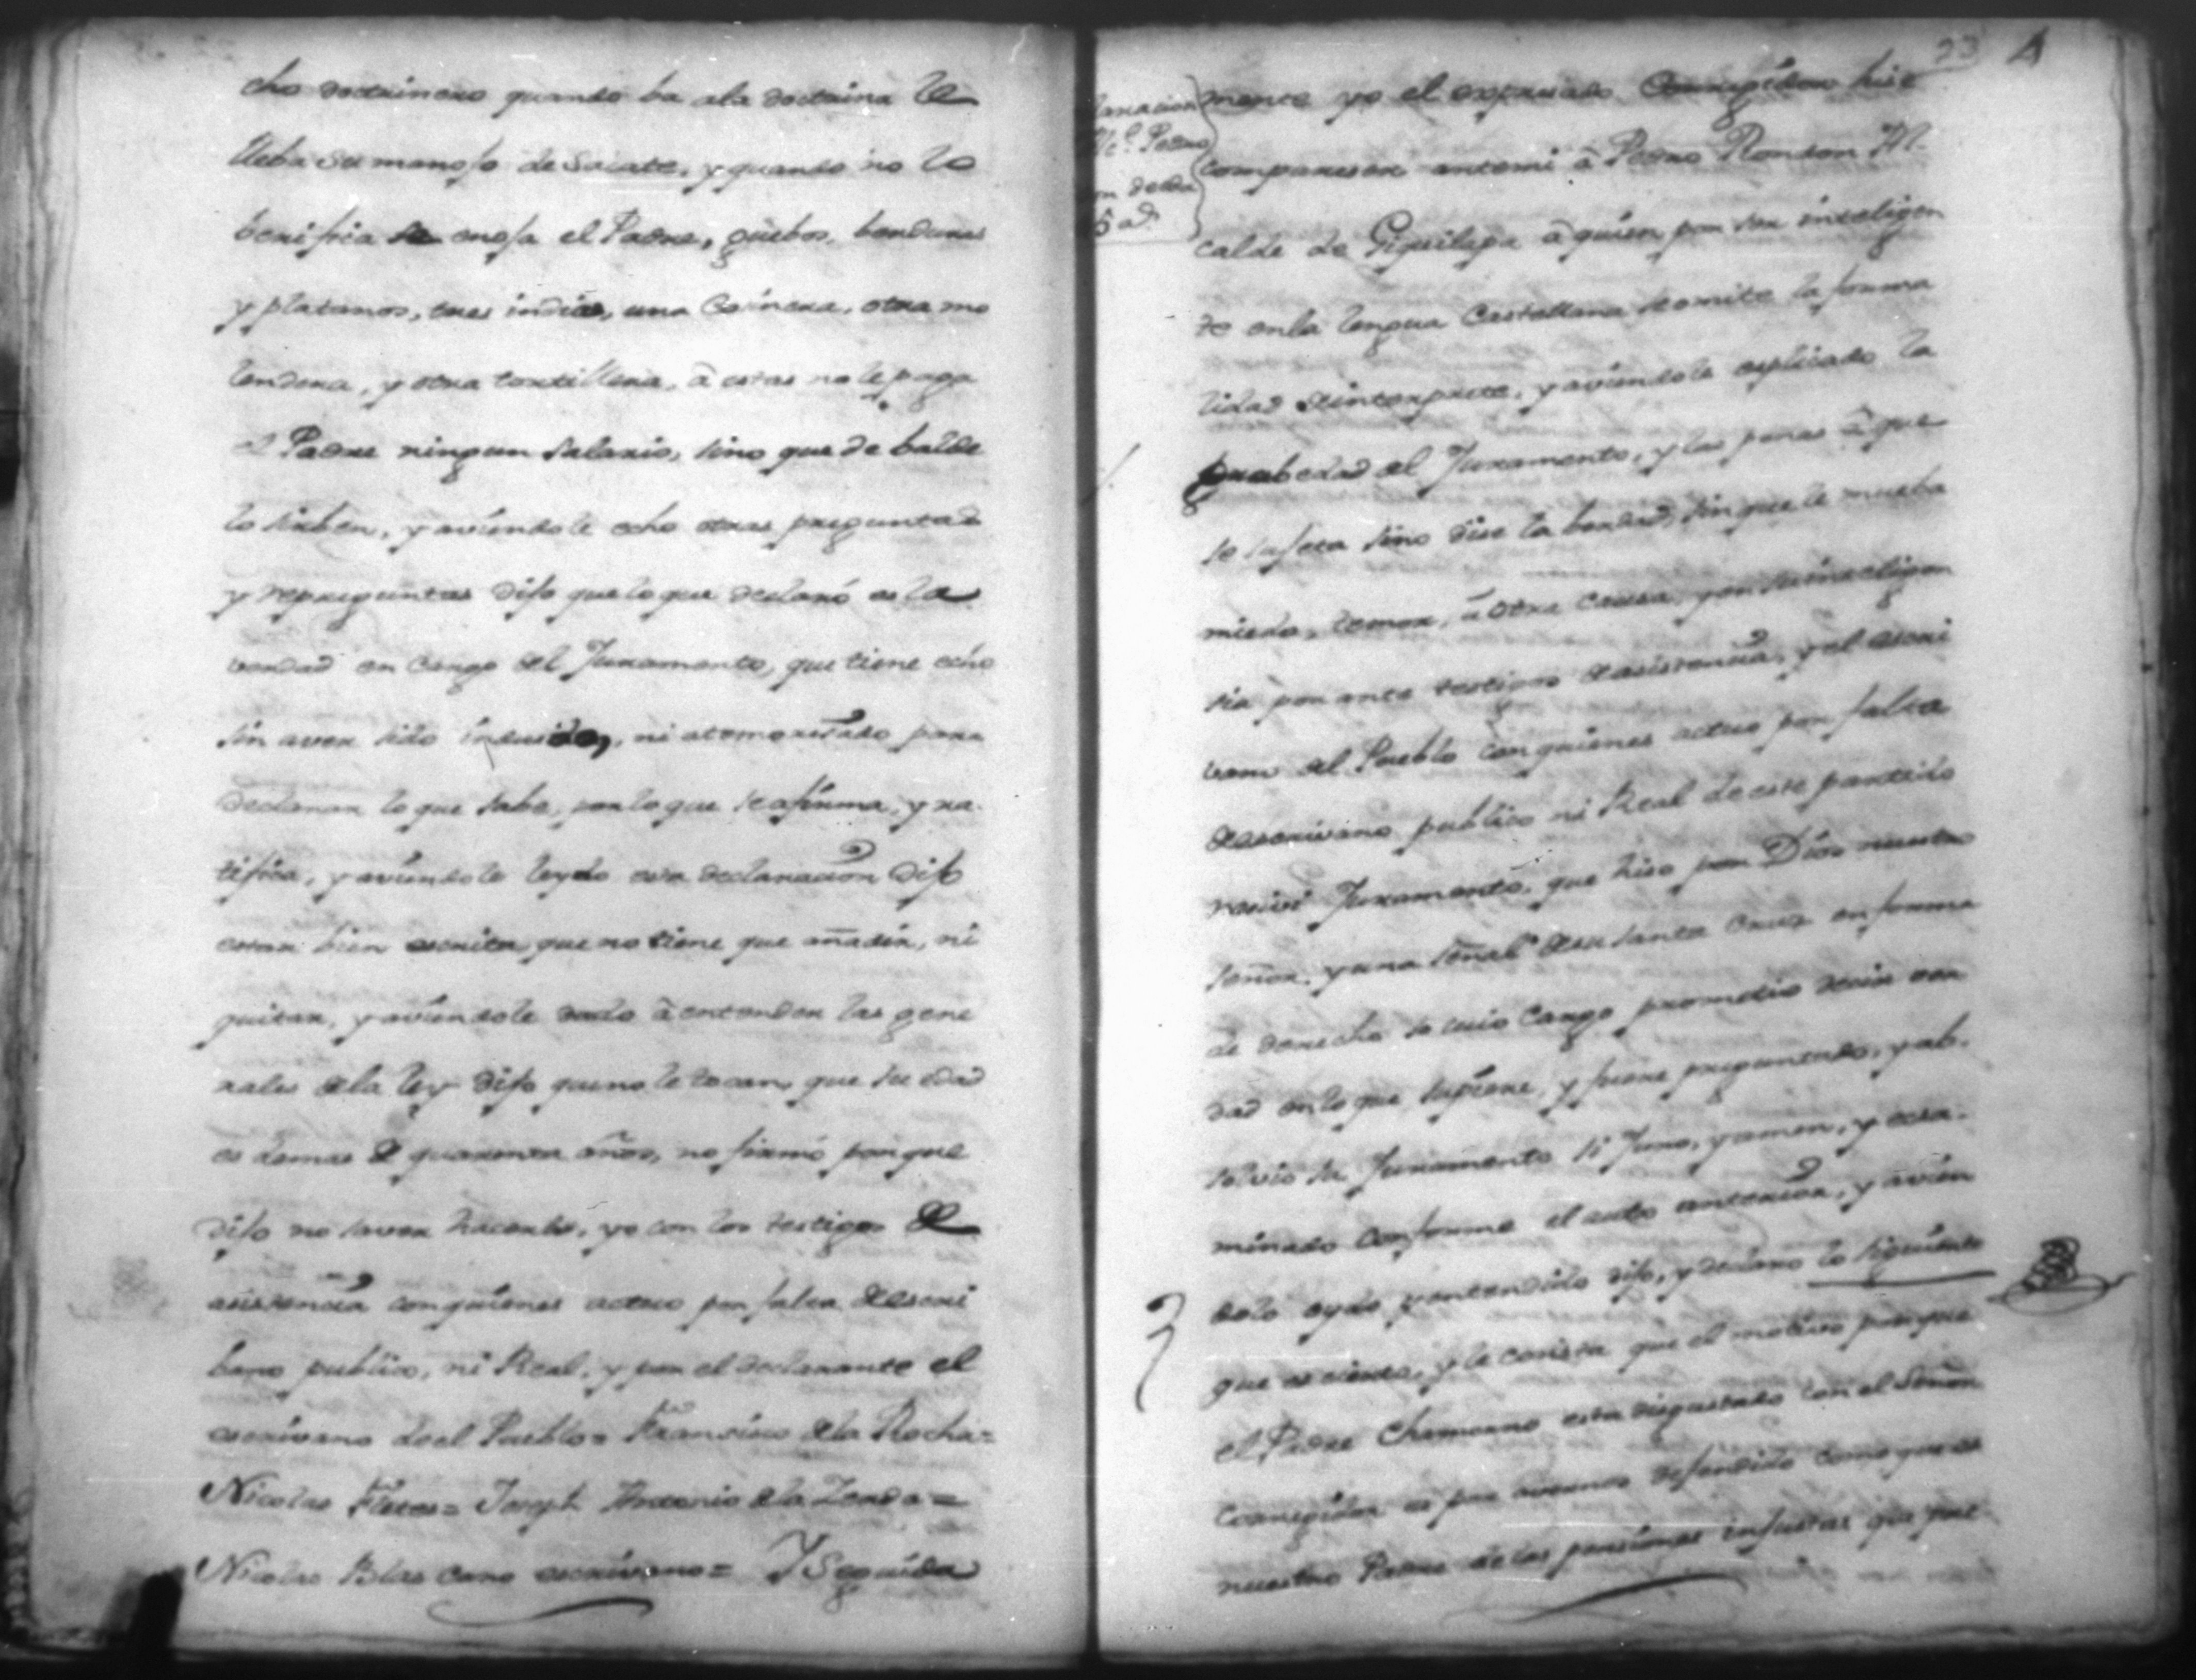 cho doctrinero quando ba ala doctrina le
lleba su manojo de Sacate, y quando no lo
berifica se enoja el Padre, guebos, berduras
y platanos, tres indias, una Cosinera, otra mo
lendera, y otra tortillera, â estas no le paga
el Padre ningun salario, sino que de balde
lo sirben, y aviendole echo otras preguntas
y repreguntas dijo que lo que declaró es la
verdad en Cargo del Juramento, que tiene echo
sin aver sido indusido, ni atemorisado para
declarar lo que sabe, por lo que se afirma, y ra
tifica, y aviendole leydo esta declaracion dijo
estar bien escrita que no tiene que añadir, ni
quitar, y aviendole dado â entender las gene
rales dela ley dijo que no le tocan, que su edad
es demas de quarenta años, no firmó porque
dijo no saver hacerlo, yo con los testigos de
asistencia con quienes actuo por falta de escri
bano publico, ni Real, y por el declarante el
escrivano de el Pueblo = Francisco dela Rocha =
Nicolas Fletes = Joseph Antonio dela Zerda =
Nicolas Blas Cano escrivano = Y Seguida
23
mente yo el expresado Corregidor hise
compareser antemi â Pedro Rondon Al
calde de Giquilapa â quien por ser inteligen
te enla lengua Castellana se omite la forma
lidad de interprete, y aviendole esplicado la
grabedad del Juramento, y las penas â que
se sujeta sino dise la berdad, sin que le mueba
miedo, temor, u otra causa, y en su inteligen
sia por ante testigos de asistencia, y el escri
vano del Pueblo con quienes actuo por falta
de escrivano publico ni Real de este partido
recivi Juramento, que hiso por Dios nuestro
señor, y una señal de su santa Cruz en forma
de derecho so cuio Cargo prometio decir ver
dad en lo que supiere, y fuere preguntado, y ab
solvio su Juramento si Juro, y amen, y exsa
minado conforme el auto anterior, y avien
dolo oydo y entendido dijo, y declaro lo siguiente
que es cierto, y le consta que el motivo porque
el Padre Chamorro esta disgustado con el Señor
Corregidor es por avernos defendido como que es
nuestro Padre de las pensiones injustas que que